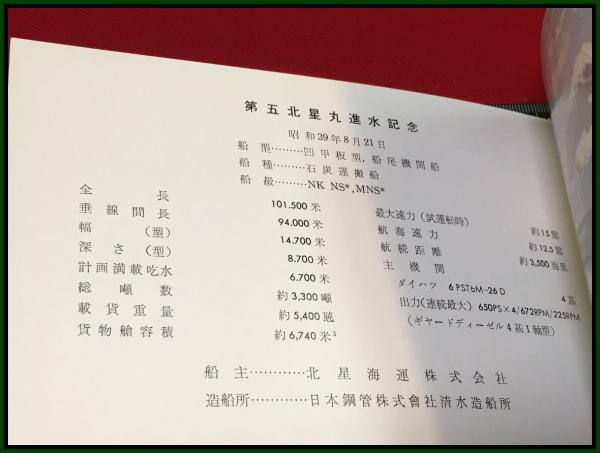 第五北星丸進水記念
昭和39年8月21日
船型………凹甲板型，船尾機関船
船種………石炭運搬船
船級………NK NS*, MNS*
全長 101.500米
垂線間長 94.000米
幅（型） 14.700米
深さ（型） 8.700米
計画満載吃水 6.700米
総噸数 約3,300噸
載貨重量 約5,400瓲
貨物艙容積 約6,740米³
最大速力（試運転時） 約15節
航海速力 約12.5節
航続距離 約3,500海里
主機関
ダイハツ 6PSTbM-26D 4基
出力（連続最大）650PS×4/672RPM/225RPM
（ギヤードディーゼル4基1軸型）
船主…………北星海運株式会社
造船所…………日本鋼管株式會社清水造船所